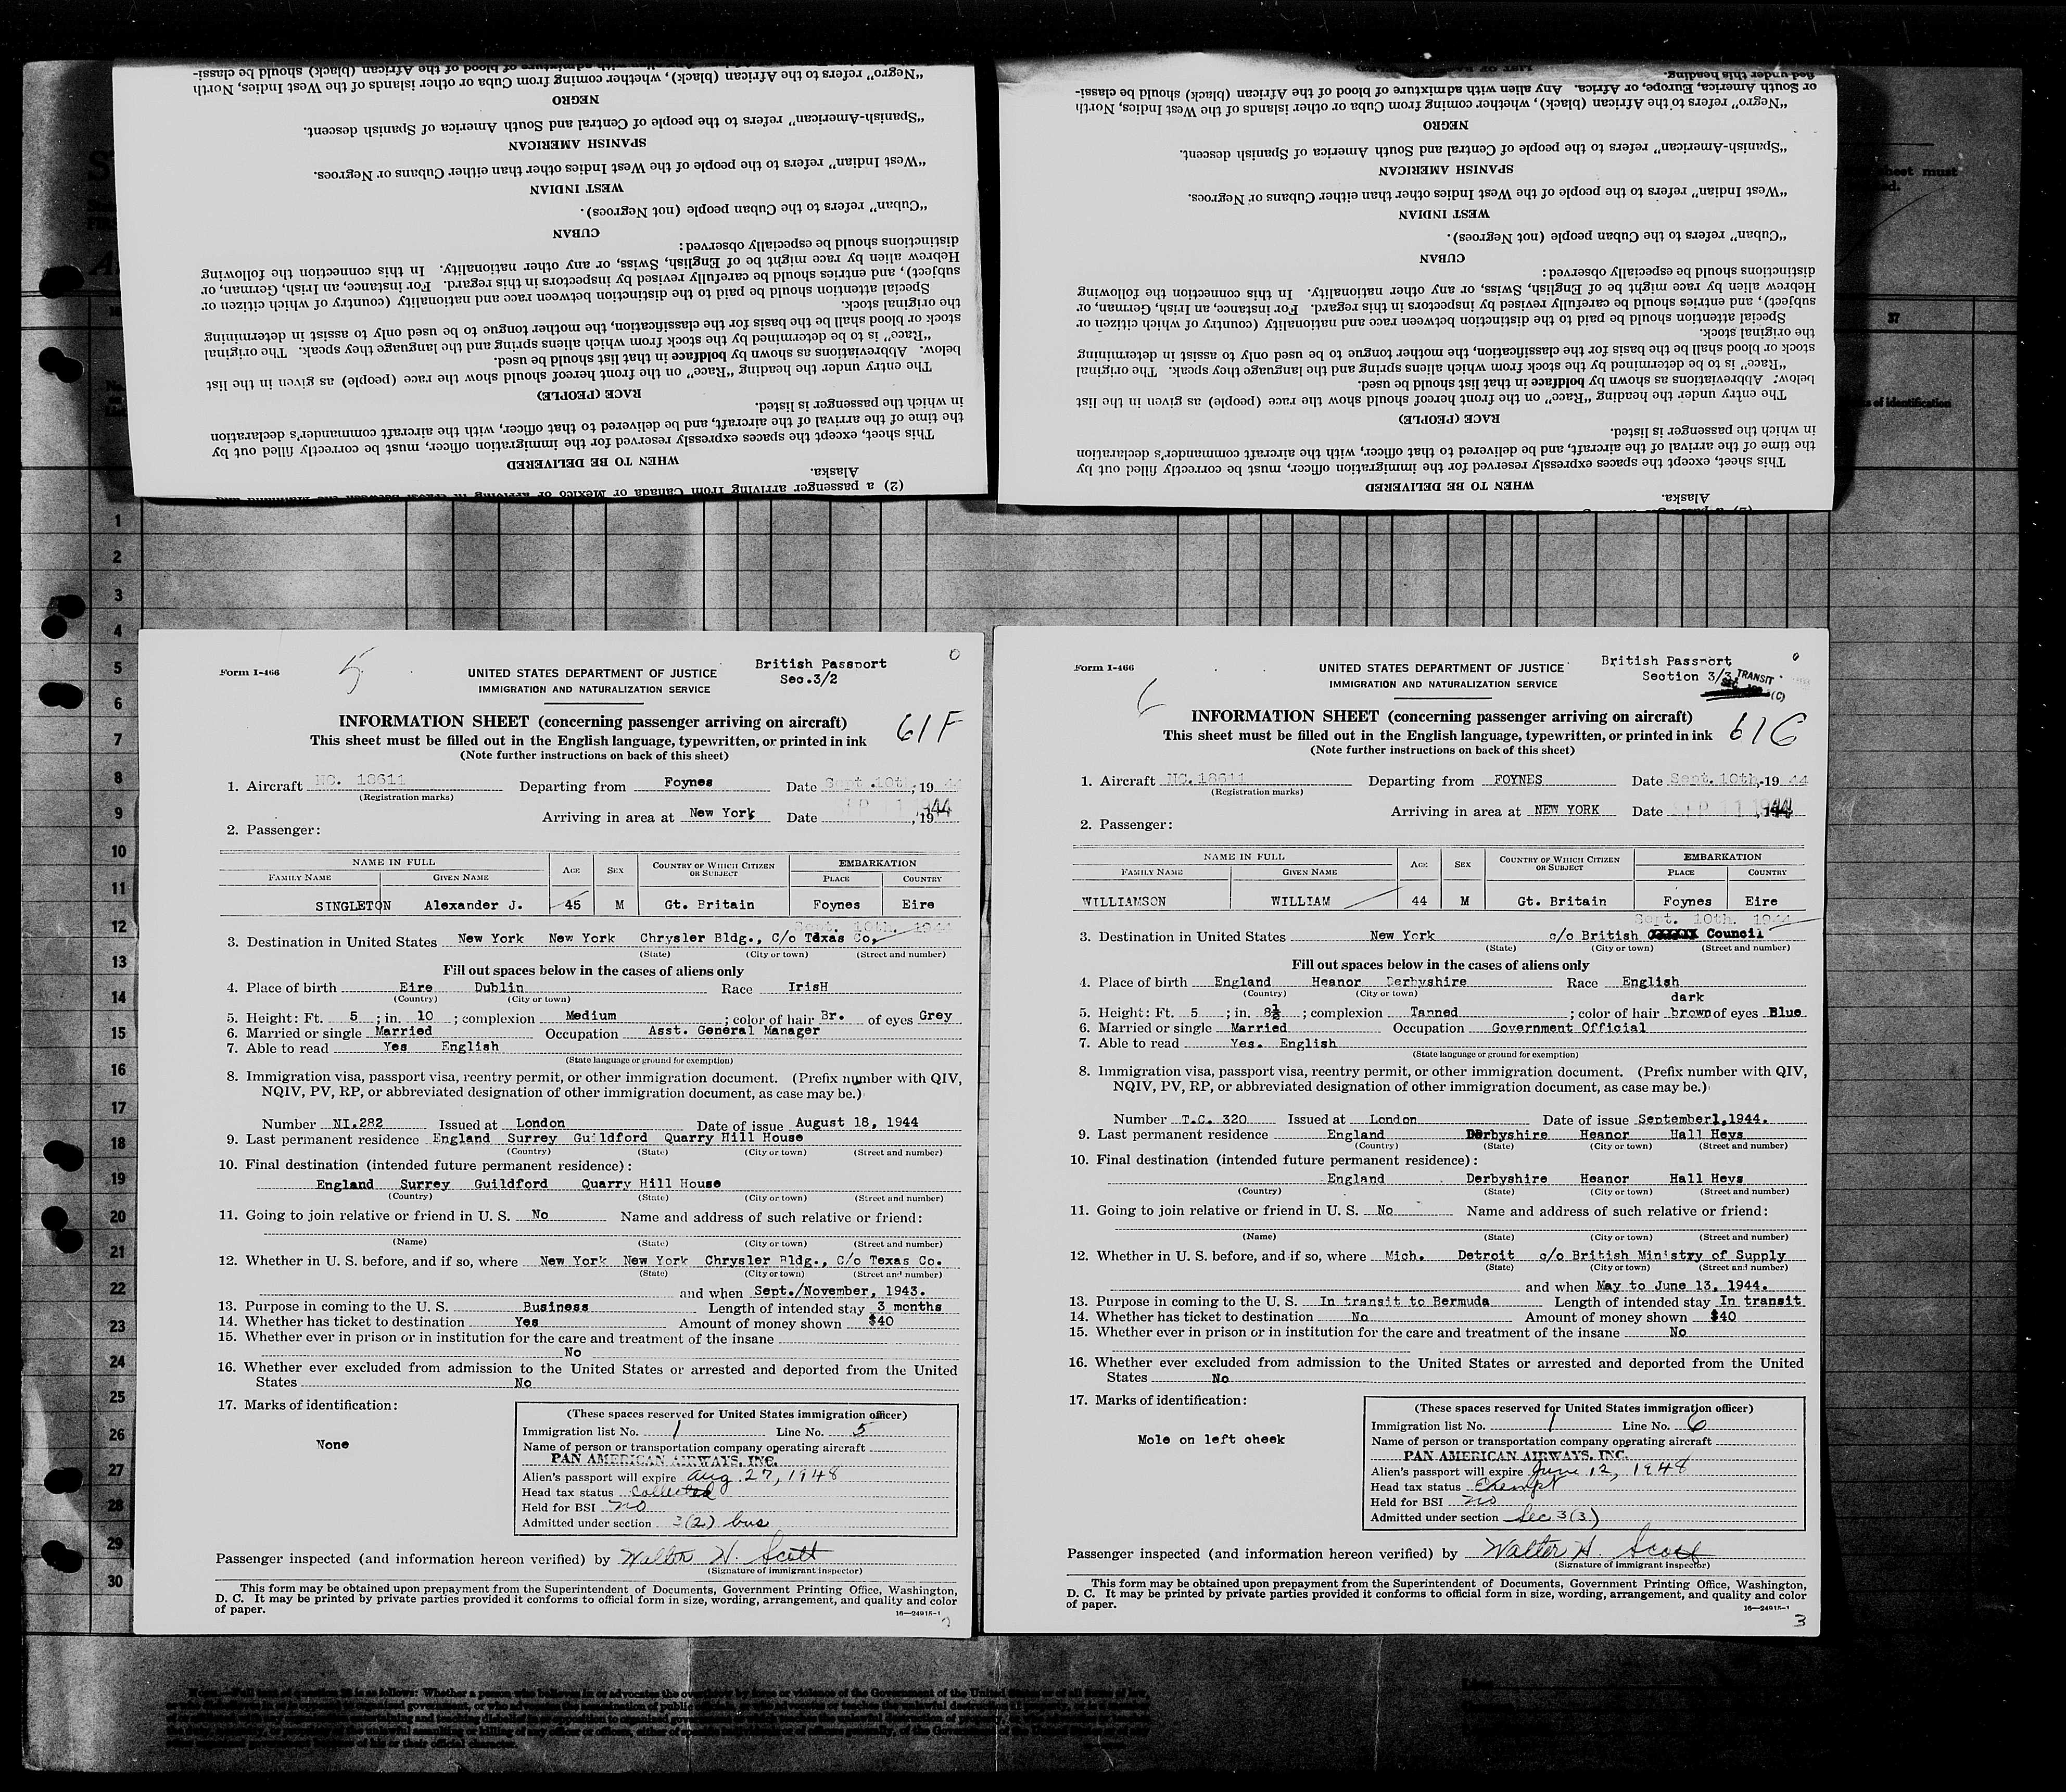 "Negro" refers to the African (black), whether coming from Cuba or other islands of the West Indies, North
NEGRO
"Spanish-American" refers to the people of Central and South America of Spanish descent.
SPANISH AMERICAN
"West Indian" refers to the people of the West Indies other than either Cubans or Negroes.
WEST INDIAN
"Cuban" refers to the Cuban people (not Negroes).
CUBAN
distinctions should be especially observed:
Hebrew alien by race might be of English, Swiss, or any other nationality. In this connection the following
subject), and entries should be carefully revised by inspectors in this regard. For instance, an Irish, German, or
Special attention should be paid to the distinction between race and nationality (country of which citizen or
the original stock.
stock or blood shall be the basis for the classification, the mother tongue to be used only to assist in determining
"Race" is to be determined by the stock from which aliens spring and the language they speak. The original
below. Abbreviations as shown by boldface in that list should be used.
The entry under the heading "Race" on the front hereof should show the race (people) as given in the list
RACE (PEOPLE)
in which the passenger is listed.
the time of the arrival of the aircraft, and be delivered to that officer, with the aircraft commander's declaration
This sheet, except the spaces expressly reserved for the immigration officer, must be correctly filled out by
WHEN TO BE DELIVERED
Alaska.
(2) a passenger arriving from Canada or Mexico or arriving in
fied under this heading.
or South America, Europe, or Africa. Any alien with admixture of blood of the African (black) should be classi-
"Negro" refers to the African (black), whether coming from Cuba or other islands of the West Indies, North
NEGRO
"Spanish-American" refers to the people of Central and South America of Spanish descent.
SPANISH AMERICAN
"West Indian" refers to the people of the West Indies other than either Cubans or Negroes.
WEST INDIAN
"Cuban" refers to the Cuban people (not Negroes).
CUBAN
distinctions should be especially observed:
Hebrew alien by race might be of English, Swiss, or any other nationality. In this connection the following
subject), and entries should be carefully revised by inspectors in this regard. For instance, an Irish, German, or
Special attention should be paid to the distinction between race and nationality (country of which citizen or
the original stock.
stock or blood shall be the basis for the classification, the mother tongue to be used only to assist in determining
"Race" is to be determined by the stock from which aliens spring and the language they speak. The original
below. Abbreviations as shown by boldface in that list should be used.
The entry under the heading "Race" on the front hereof should show the race (people) as given in the list
RACE (PEOPLE)
in which the passenger is listed.
the time of the arrival of the aircraft, and be delivered to that officer, with the aircraft commander's declaration
This sheet, except the spaces expressly reserved for the immigration officer, must be correctly filled out by
WHEN TO BE DELIVERED
Alaska.
37
1
2
3
4
5
6
7
8
9
10
11
12
13
14
15
16
17
18
19
20
21
22
23
24
25
26
27
28
29
30
Form I-466
5
UNITED STATES DEPARTMENT OF JUSTICE
IMMIGRATION AND NATURALIZATION SERVICE
British Passport
Sec.3/2
0
INFORMATION SHEET (concerning passenger arriving on aircraft)
61F
This sheet must be filled out in the English language, typewritten, or printed in ink
(Note further instructions on back of this sheet)
1. Aircraft NC. 18611 Departing from Foynes Date Sept.10th, 1944
(Registration marks)
Arriving in area at New York Date SEP 11 1944
2. Passenger:
NAME IN FULL AGE SEX COUNTRY OF WHICH CITIZEN OR SUBJECT EMBARKATION
FAMILY NAME GIVEN NAME PLACE COUNTRY
SINGLETON Alexander J. 45 M Gt. Britain Foynes Eire
Sept. 10th. 1944
3. Destination in United States New York New York Chrysler Bldg., C/o Texas Co,
(State) (City or town) (Street and number)
Fill out spaces below in the cases of aliens only
4. Place of birth Eire Dublin Race IrisH
(Country) (City or town)
5. Height: Ft. 5; in. 10; complexion Medium; color of hair Br. of eyes Grey
6. Married or single Married Occupation Asst. General Manager
7. Able to read Yes English
(State language or ground for exemption)
8. Immigration visa, passport visa, reentry permit, or other immigration document. (Prefix number with QIV,
NQIV, PV, RP, or abbreviated designation of other immigration document, as case may be.)
Number NI.282 Issued at London Date of issue August 18, 1944
9. Last permanent residence England Surrey Guildford Quarry Hill House
(Country) (State) (City or town) (Street and number)
10. Final destination (intended future permanent residence):
England Surrey Guildford Quarry Hill House
(Country) (State) (City or town) (Street and number)
11. Going to join relative or friend in U. S. No Name and address of such relative or friend:
(Name) (State) (City or town) (Street and number)
12. Whether in U. S. before, and if so, where New York New York Chrysler Bldg., C/o Texas Co.
(State) (City or town) (Street and number)
and when Sept./November, 1943.
13. Purpose in coming to the U. S. Business Length of intended stay 3 months
14. Whether has ticket to destination Yes Amount of money shown $40
15. Whether ever in prison or in institution for the care and treatment of the insane
No
16. Whether ever excluded from admission to the United States or arrested and deported from the United
States No
17. Marks of identification:
None
(These spaces reserved for United States immigration officer)
Immigration list No. 1 Line No. 5
Name of person or transportation company operating aircraft
PAN AMERICAN AIRWAYS, INC.
Alien's passport will expire Aug 27, 1948
Head tax status Collected
Held for BSI no
Admitted under section 3(2) bus
Passenger inspected (and information hereon verified) by Walter H. Scott
(Signature of immigrant inspector)
This form may be obtained upon prepayment from the Superintendent of Documents, Government Printing Office, Washington,
D. C. It may be printed by private parties provided it conforms to official form in size, wording, arrangement, and quality and color
of paper.
16—24915-1
Form I-466
6
UNITED STATES DEPARTMENT OF JUSTICE
IMMIGRATION AND NATURALIZATION SERVICE
British Passport
Section 3/3 TRANSIT
(C)
INFORMATION SHEET (concerning passenger arriving on aircraft)
61G
This sheet must be filled out in the English language, typewritten, or printed in ink
(Note further instructions on back of this sheet)
1. Aircraft NC. 18611 Departing from FOYNES Date Sept. 10th, 1944
(Registration marks)
Arriving in area at NEW YORK Date SEP 11 1944
2. Passenger:
NAME IN FULL AGE SEX COUNTRY OF WHICH CITIZEN OR SUBJECT EMBARKATION
FAMILY NAME GIVEN NAME PLACE COUNTRY
WILLIAMSON WILLIAM 44 M Gt. Britain Foynes Eire
Sept. 10th. 1944
3. Destination in United States New York c/o British Council
(State) (City or town) (Street and number)
Fill out spaces below in the cases of aliens only
4. Place of birth England Heanor Derbyshire Race English
(Country) (City or town)
dark
5. Height: Ft. 5; in. 8½; complexion Tanned; color of hair brown of eyes Blue
6. Married or single Married Occupation Government Official
7. Able to read Yes. English
(State language or ground for exemption)
8. Immigration visa, passport visa, reentry permit, or other immigration document. (Prefix number with QIV,
NQIV, PV, RP, or abbreviated designation of other immigration document, as case may be.)
Number T.C. 320 Issued at London Date of issue September1,1944.
9. Last permanent residence England Derbyshire Heanor Hall Heys
(Country) (State) (City or town) (Street and number)
10. Final destination (intended future permanent residence):
England Derbyshire Heanor Hall Heys
(Country) (State) (City or town) (Street and number)
11. Going to join relative or friend in U. S. No Name and address of such relative or friend:
(Name) (State) (City or town) (Street and number)
12. Whether in U. S. before, and if so, where Mich. Detroit c/o British Ministry of Supply
(State) (City or town) (Street and number)
and when May to June 13, 1944.
13. Purpose in coming to the U. S. In transit to Bermuda Length of intended stay In transit
14. Whether has ticket to destination No Amount of money shown $40
15. Whether ever in prison or in institution for the care and treatment of the insane No
16. Whether ever excluded from admission to the United States or arrested and deported from the United
States No
17. Marks of identification:
Mole on left cheek
(These spaces reserved for United States immigration officer)
Immigration list No. 1 Line No. 6
Name of person or transportation company operating aircraft
PAN AMERICAN AIRWAYS, INC.
Alien's passport will expire June 12, 1948
Head tax status Exempt
Held for BSI no
Admitted under section Sec 3(3)
Passenger inspected (and information hereon verified) by Walter H. Scott
(Signature of immigrant inspector)
This form may be obtained upon prepayment from the Superintendent of Documents, Government Printing Office, Washington,
D. C. It may be printed by private parties provided it conforms to official form in size, wording, arrangement, and quality and color
of paper.
16—24915-1
3